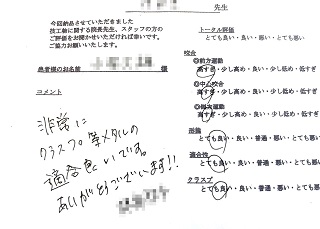 先生
今回納品させていただきました
技工物に関する院長先生、スタッフの方の
ご評価をお聞かせいただければ幸いです。
ご協力お願いいたします。
患者様のお名前 様
コメント
非常に
クラスプ等メタルの
適合良いです。
ありがとうございます!!
トータル評価
とても良い・良い・悪い・とても悪い
咬合
◎前方運動
高すぎ・少し高め・良い・少し低め・低すぎ
◎中心咬合
高すぎ・少し高め・良い・少し低め・低すぎ
◎側方運動
高すぎ・少し高め・良い・少し低め・低すぎ
とても良い・良い・普通・悪い・とても悪い
適合性
とても良い・良い・普通・悪い・とても悪い
クラスプ
とても良い・良い・普通・悪い・とても悪い